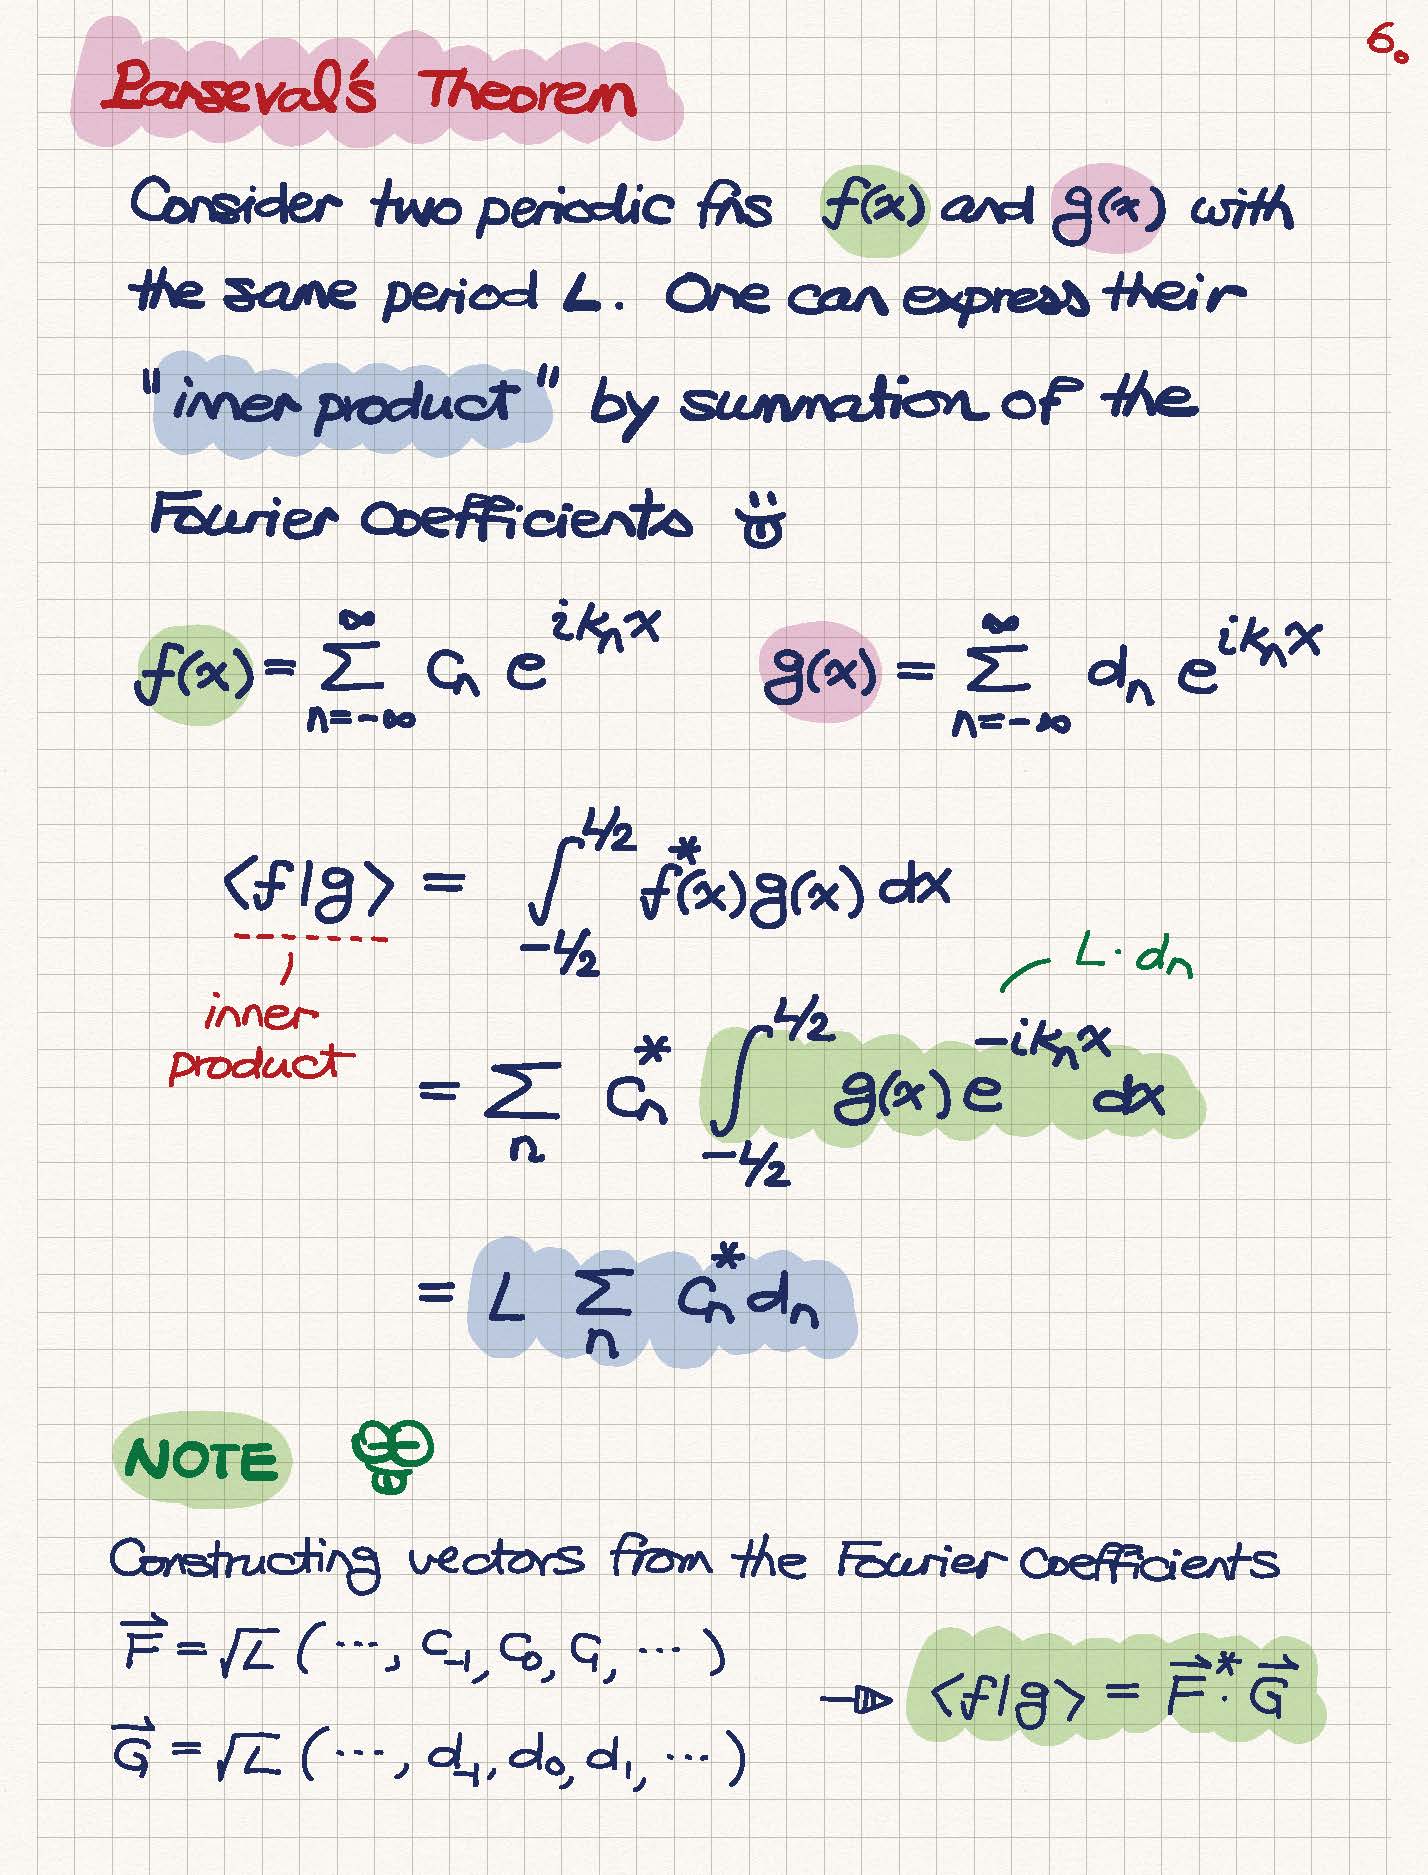 6.
Parseval's Theorem
Consider two periodic fns f(x) and g(x) with
the same period L. One can express their
"inner product" by summation of the
Fourier coefficients
f(x) = ∑_{n=-∞}^{∞} Cₙ e^{ikₙx}    g(x) = ∑_{n=-∞}^{∞} dₙ e^{ikₙx}
<f|g> = ∫_{-L/2}^{L/2} f*(x) g(x) dx
inner
product
L · dₙ
= ∑_n Cₙ* ∫_{-L/2}^{L/2} g(x) e^{-ikₙx} dx
= L ∑_n Cₙ* dₙ
NOTE
Constructing vectors from the Fourier coefficients
F⃗ = √L (⋯, C₋₁, C₀, C₁, ⋯)
G⃗ = √L (⋯, d₋₁, d₀, d₁, ⋯)
<f|g> = F⃗* · G⃗